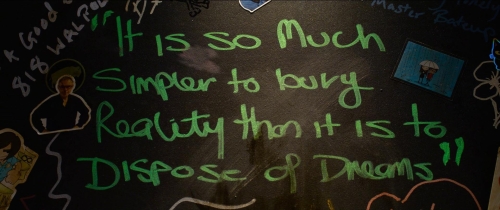 "It is so Much
Simpler to bury
Reality than it is to
Dispose of Dreams"
A Good
818 WALROD
Master